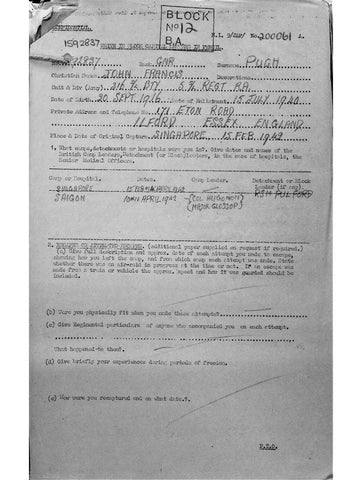 BLOCK
No 12
B.A.
M.I. 9/JAP/ No. 200061 A.
1592837
Rank. GNR Surname. PUGH
Christian Names. JOHN FRANCIS Decorations.
Unit & Div (Army).
Date of Birth. 20 SEPT. 1916 Date of Enlistment. 15 JULY 1940
Private Address and Telephone No. 171 ETON ROAD
ILFORD ESSEX ENGLAND
Place & Date of Original Capture. SINGAPORE 15 FEB 1942
1. What camps, detachments or hospitals were you in? Give dates and names of the
British Camp Leaders, Detachment (or Block) leaders, in the case of hospitals, the
Senior Medical Officers.
Camp or Hospital. Dates. Camp Leader. Detachment or Block
Leader (if any)
SINGAPORE RSM PULFORD
SAIGON APRIL 1942 (COL HUGONIN)
(MAJOR GLOSSOP)
2. (additional paper supplied on request if required.)
(a) Give full description and approx. date of each attempt you made to escape,
showing how you left the camp, and from which camp each attempt was made. State
whether there was an air-raid in progress at the time or not. If an escape was
made from a train or vehicle the approx. speed and how it was guarded should be
included.
(b) Were you physically fit when you made these attempts?
(c) Give Regimental particulars of anyone who accompanied you on each attempt.
What happened to them?
(d) Give briefly your experiences during periods of freedom.
(e) How were you recaptured and on what date?
P.T.O.